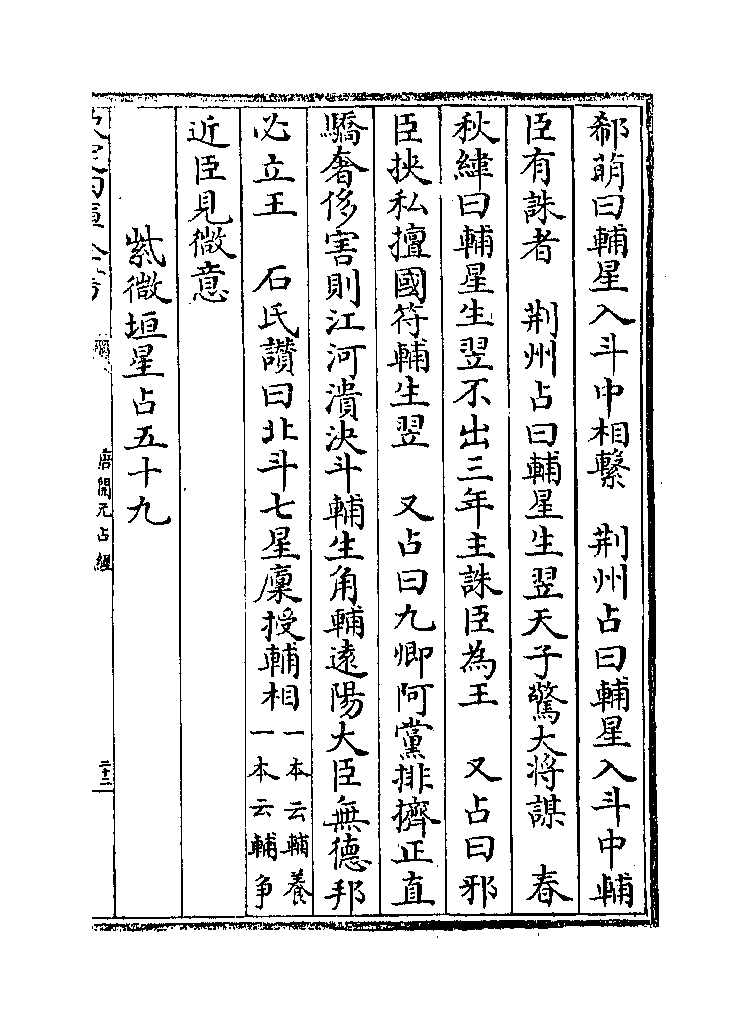 郗萌曰輔星入斗中相繫　荆州占曰輔星入斗中輔
臣有誅者　荆州占曰輔星生翌天子驚大将謀　春
秋緯曰輔星生翌不出三年主誅臣為王　又占曰邪
臣挾私擅國符輔生翌　又占曰九卿阿黨排擠正直
驕奢侈害則江河潰決斗輔生角輔遠陽大臣無德邦
必立王　石氏讃曰北斗七星廪授輔相一本云輔養一本云輔爭
近臣見微意
紫微垣星占五十九
唐開元占經
二十三